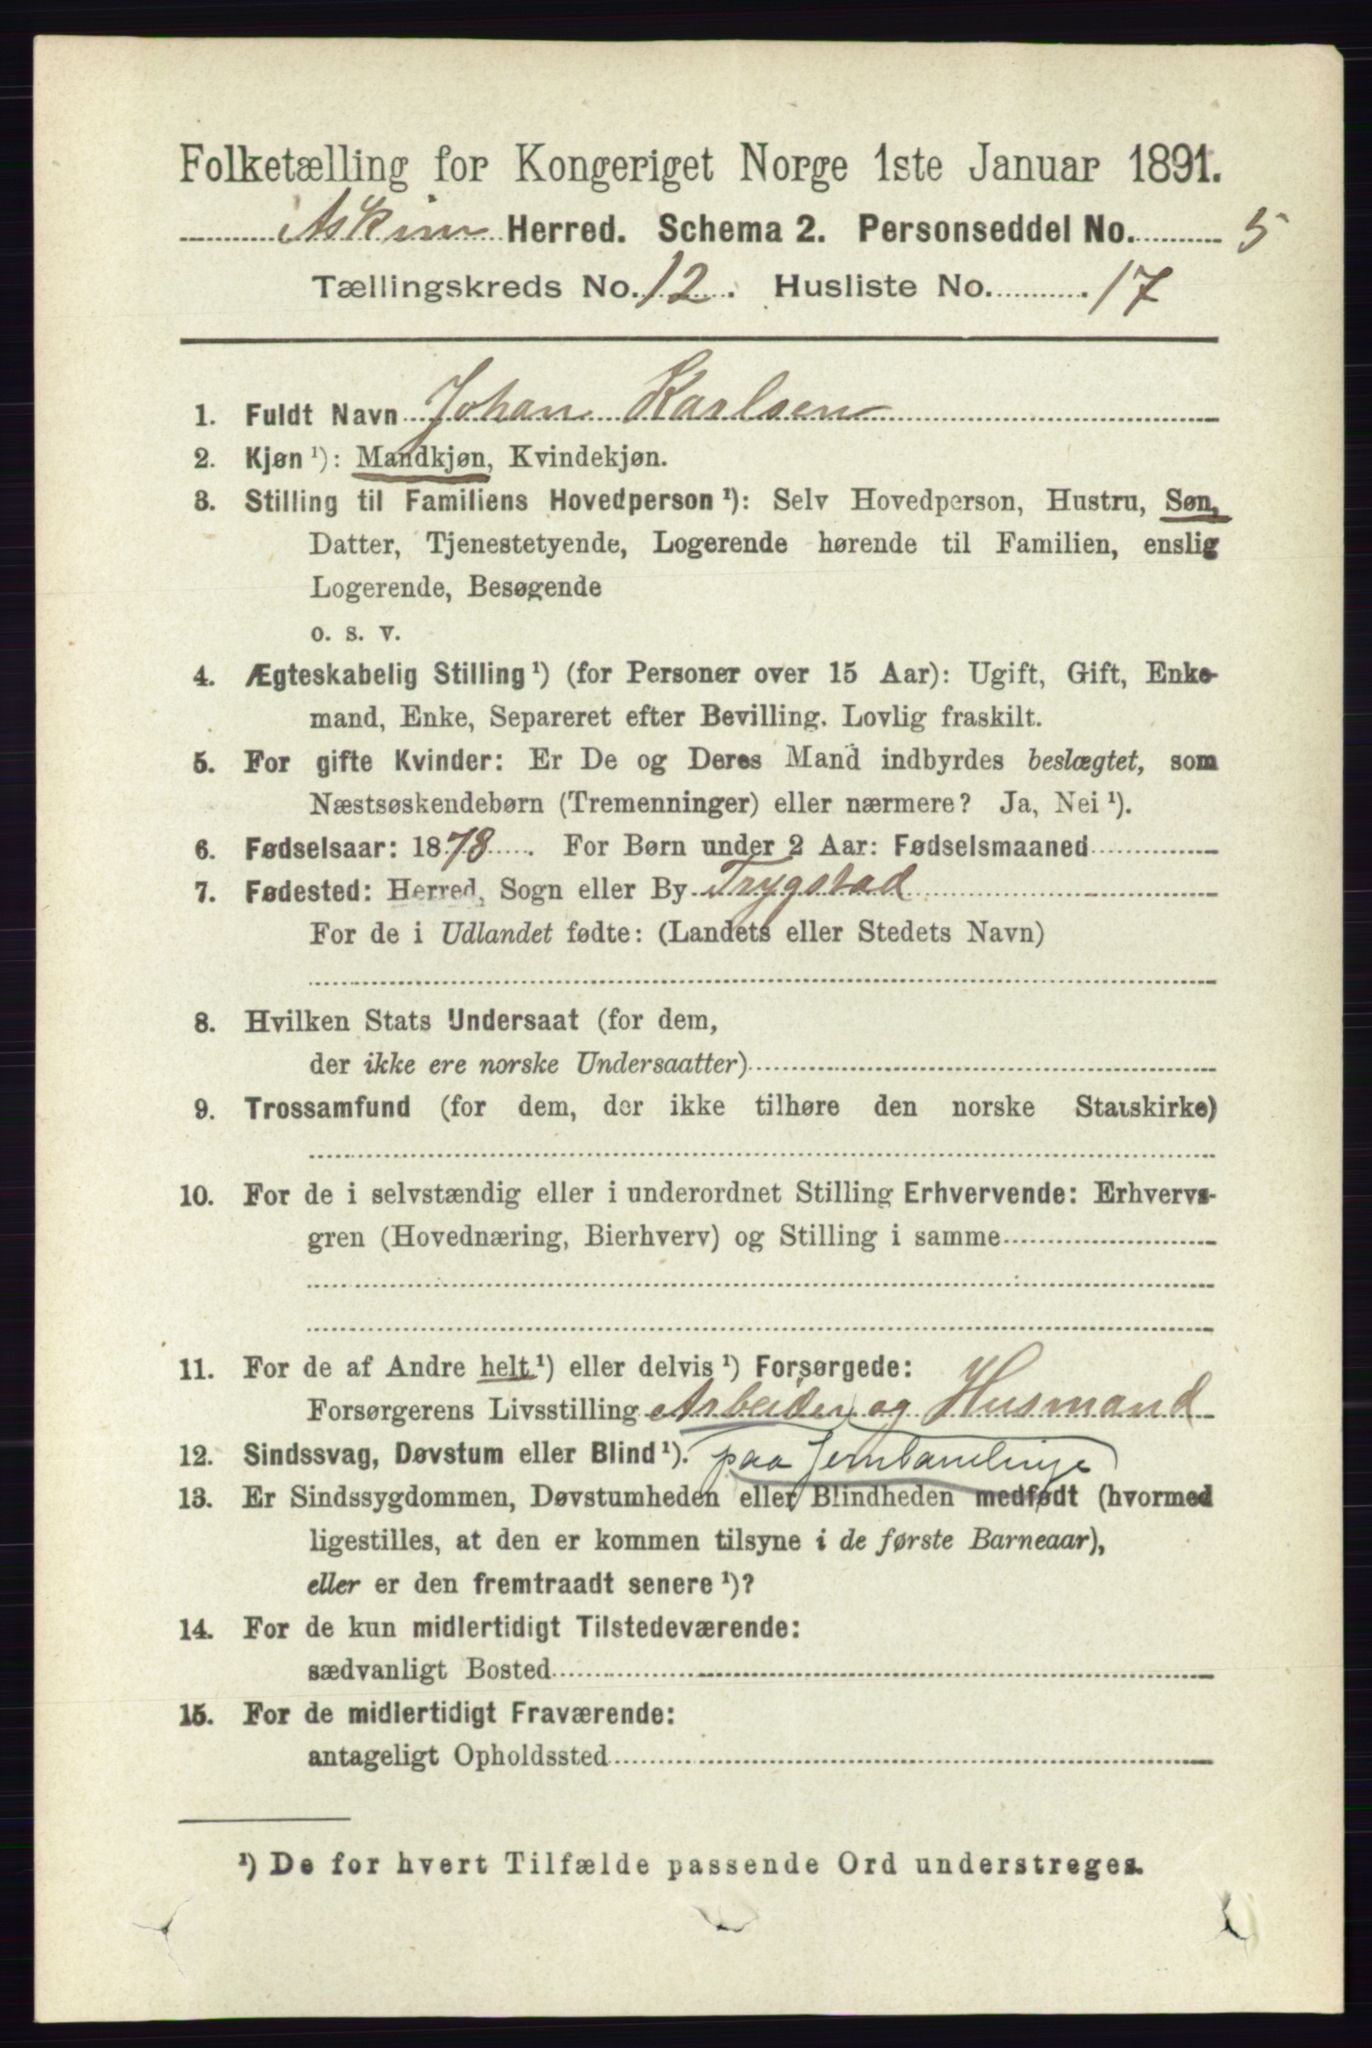 Folketælling for Kongeriget Norge 1ste Januar 1891.
Askim Herred. Schema 2. Personseddel No. 5
Tællingskreds No. 12. Husliste No. 17
1. Fuldt Navn Johan Karlsen
2. Kjøn¹): Mandkjøn, Kvindekjøn.
3. Stilling til Familiens Hovedperson¹): Selv Hovedperson, Hustru, Søn,
Datter, Tjenestetyende, Logerende hørende til Familien, enslig
Logerende, Besøgende
o. s. v.
4. Ægteskabelig Stilling¹) (for Personer over 15 Aar): Ugift, Gift, Enke-
mand, Enke, Separeret efter Bevilling. Lovlig fraskilt.
5. For gifte Kvinder: Er De og Deres Mand indbyrdes beslægtet, som
Næstsøskendebørn (Tremenninger) eller nærmere? Ja, Nei¹).
6. Fødselsaar: 1878. For Børn under 2 Aar: Fødselsmaaned
7. Fødested: Herred, Sogn eller By Trygstad
For de i Udlandet fødte: (Landets eller Stedets Navn)
8. Hvilken Stats Undersaat (for dem,
der ikke ere norske Undersaatter)
9. Trossamfund (for dem, der ikke tilhøre den norske Statskirke)
10. For de i selvstændig eller i underordnet Stilling Erhvervende: Erhvervs-
gren (Hovednæring, Bierhverv) og Stilling i samme
11. For de af Andre helt¹) eller delvis¹) Forsørgede:
Forsørgerens Livsstilling Arbeider og Husmand
12. Sindssvag, Døvstum eller Blind¹). paa
13. Er Sindssygdommen, Døvstumheden eller Blindheden medfødt (hvormed
ligestilles, at den er kommen tilsyne i de første Barneaar),
eller er den fremtraadt senere¹)?
14. For de kun midlertidigt Tilstedeværende:
sædvanligt Bosted
15. For de midlertidigt Fraværende:
antageligt Opholdssted
¹) De for hvert Tilfælde passende Ord understreges.